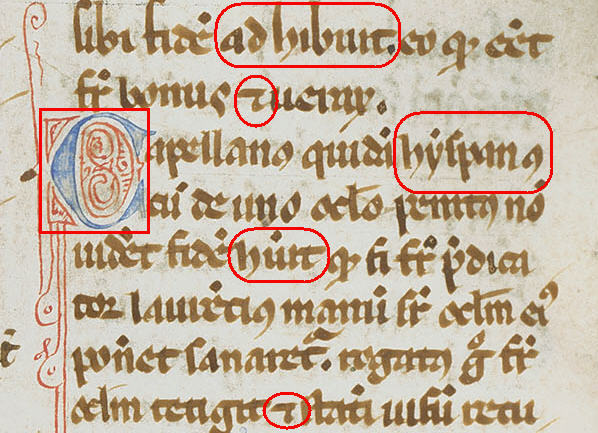 sibi fidē adhibuit. eo qꝫ eēt
fr̄ bonus ⁊ uerax.
Capellanꝯ quidā hẏspanꝯ
cū de uno oclo penitꝯ nō
uidēt fidē hūit qꝫ si fr̄ p̄dica
tor laurētiꝯ manū sr̄ oclm eiꝰ
pōnet sanaret᷑. rogatꝯ gͦ fr̄
oclm tetigit ⁊ statī uisū recu